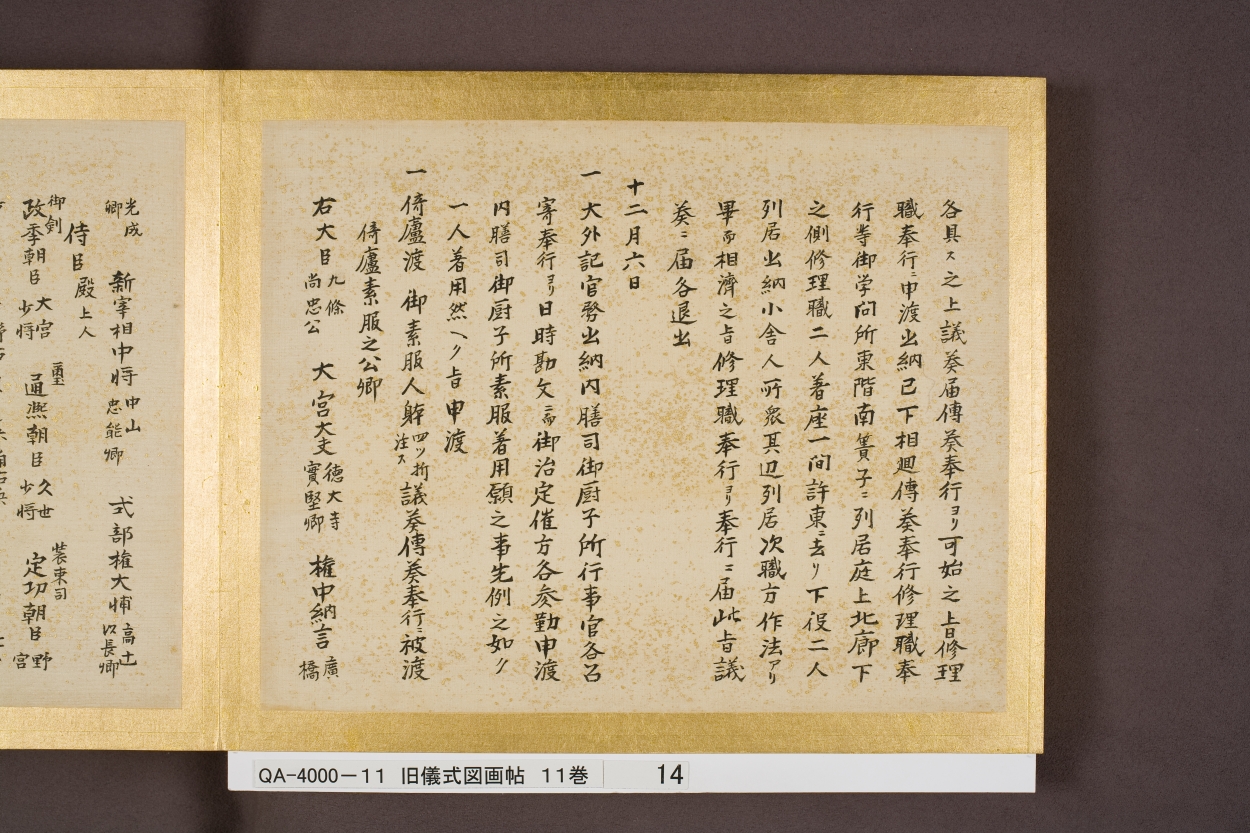 各具ス之上議奏届傳奏奉行ヨリ可始之旨修理
職奉行ニ申渡出納已下相廻傳奏奉行修理職奉
行等御学問所東階南簀子ニ列居庭上北廊下
之側修理職二人著座一間許東ニ去リ下役二人
列居出納小舎人所衆其辺列居次職方作法アリ
畢而相濟之旨修理職奉行ヨリ奉行ニ届此旨議
奏ニ届各退出
十二月六日
一大外記官務出納内膳司御厨子所行事官各召
寄奉行ヨリ日時勘文ニ而御治定催方各参勤申渡
内膳司御厨子所素服著用願之事先例之如ク
一人著用然ヘク旨申渡
一倚廬渡 御素服人躰四ツ折注ス議奏傳奏奉行ニ被渡
倚廬素服之公卿
右大臣九條尚忠公 大宮大夫徳大寺實堅卿 権中納言廣橋
光成卿 新宰相中将中山忠能卿 式部権大輔高辻以長卿
侍臣殿上人
御剣政季朝臣大宮少将 璽通熈朝臣久世少将 装束司定功朝臣野宮
QA-4000-11 旧儀式図画帖 11巻 14